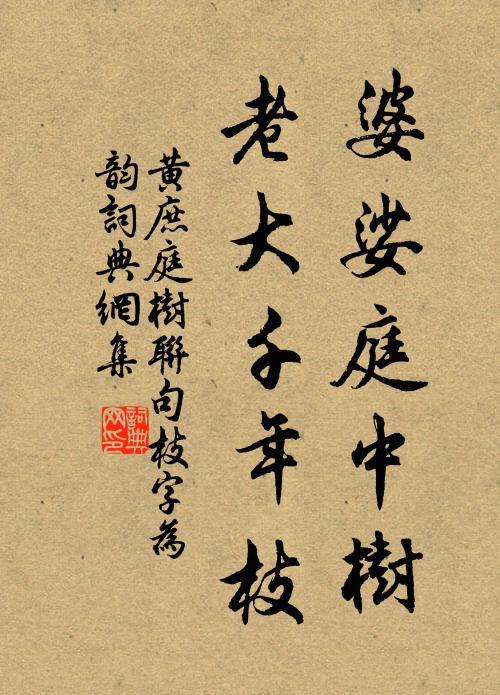 婆娑庭中樹
老大千年枝
黄庶庭樹聯句枝字為
韵詞典網集
詞典網印